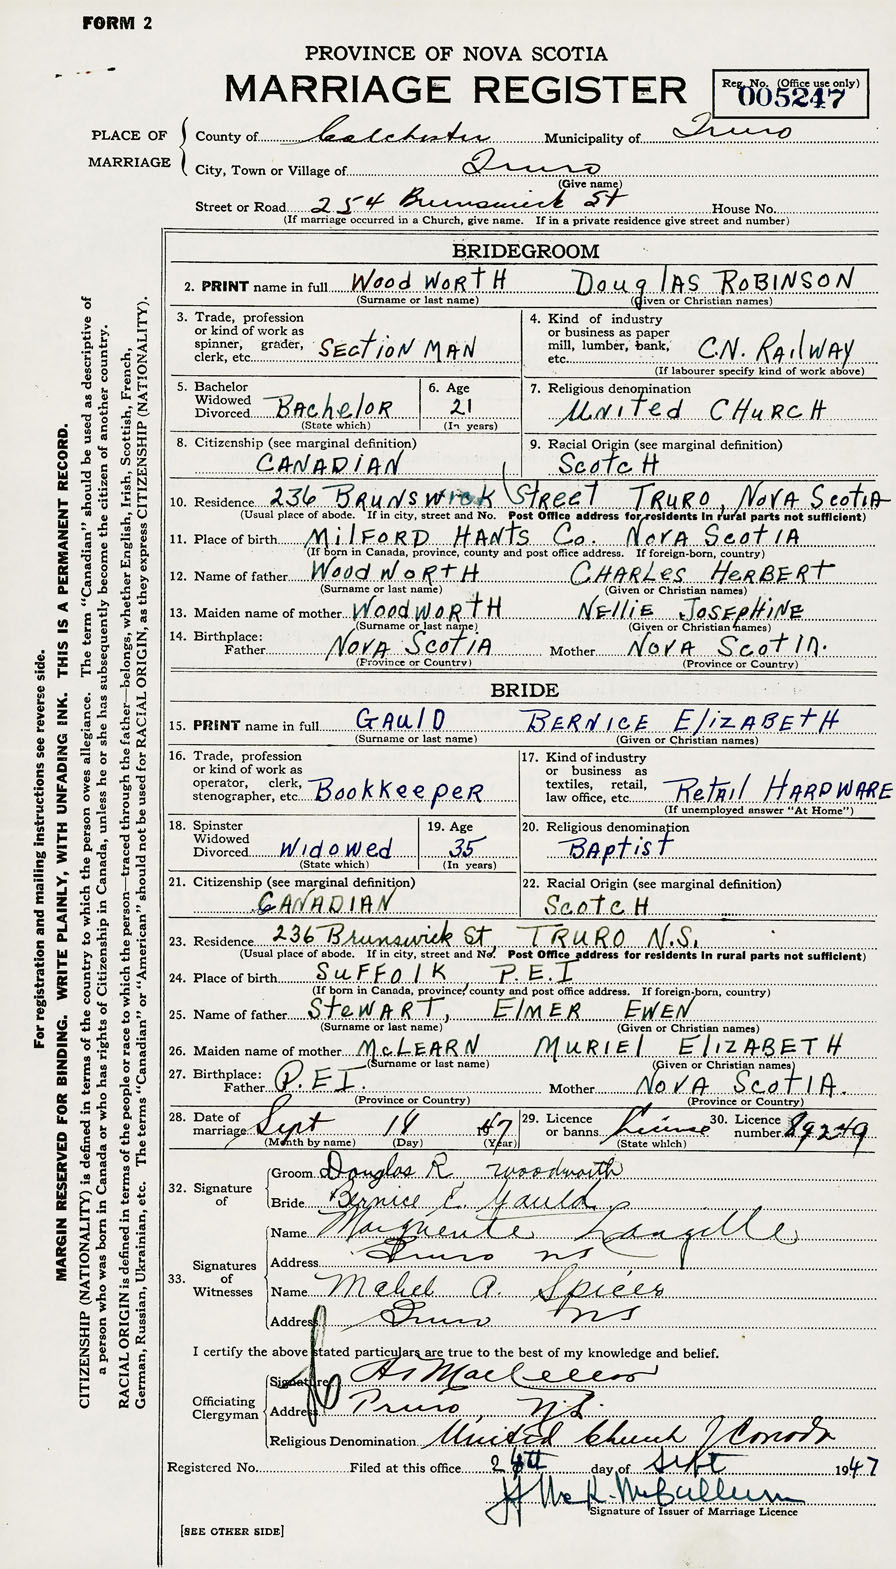 FORM 2
PROVINCE OF NOVA SCOTIA
MARRIAGE REGISTER
Reg. No. (Office use only)
005247
PLACE OF MARRIAGE
County of Colchester Municipality of Truro
City, Town or Village of Truro
(Give name)
Street or Road 254 Brunswick St House No.
(If marriage occurred in a Church, give name. If in a private residence give street and number)
BRIDEGROOM
2. PRINT name in full WoodWORTH DougLAS ROBINSON
(Surname or last name) (Given or Christian names)
3. Trade, profession or kind of work as spinner, grader, clerk, etc. SECTION MAN
4. Kind of industry or business as paper mill, lumber, bank, etc. C.N. RAilWAY
(If labourer specify kind of work above)
5. Bachelor Widowed Divorced BAcHeloR
(State which)
6. Age 21
(In years)
7. Religious denomination UNITEd CHURCH
8. Citizenship (see marginal definition) CANADIAN
9. Racial Origin (see marginal definition) ScotcH
10. Residence 236 BRUNSWICK STREET TRURO, NOVA ScotiA
(Usual place of abode. If in city, street and No. Post Office address for residents in rural parts not sufficient)
11. Place of birth MilFORD HANTS Co. NOVA ScotiA
(If born in Canada, province, county and post office address. If foreign-born, country)
12. Name of father WoodWoRTH CHARLES HERBERT
(Surname or last name) (Given or Christian names)
13. Maiden name of mother WoodWoRTH NELLIE JOSEPHINE
(Surname or last name) (Given or Christian names)
14. Birthplace: Father NOVA ScotiA Mother NOVA ScotIA.
(Province or Country) (Province or Country)
BRIDE
15. PRINT name in full GAulD BERNICE ElizABETH
(Surname or last name) (Given or Christian names)
16. Trade, profession or kind of work as operator, clerk, stenographer, etc. BookkeepeR
17. Kind of industry or business as textiles, retail, law office, etc. RetAil HARDWARE
(If unemployed answer "At Home")
18. Spinster Widowed Divorced Widowed
(State which)
19. Age 35
(In years)
20. Religious denomination BAptist
21. Citizenship (see marginal definition) CANADIAN
22. Racial Origin (see marginal definition) ScotcH
23. Residence 236 Brunswick St, TRURO N.S.
(Usual place of abode. If in city, street and No. Post Office address for residents in rural parts not sufficient)
24. Place of birth SUFFOlK P.E.I
(If born in Canada, province, county and post office address. If foreign-born, country)
25. Name of father SteWART, ElMER EWEN
(Surname or last name) (Given or Christian names)
26. Maiden name of mother McLEARN MURIEl ElIZABETH
(Surname or last name) (Given or Christian names)
27. Birthplace: Father P.E.I. Mother NOVA ScotIA.
(Province or Country) (Province or Country)
28. Date of marriage Sept 18 47
(Month by name) (Day) (Year)
29. Licence or banns License
(State which)
30. Licence number 89249
32. Signature of
Groom Douglas R woodworth
Bride Bernice E. Gauld
33. Signatures of Witnesses
Name Marguerite Langille
Address Truro ns
Name Mabel A. Spicer
Address Truro NS
I certify the above stated particulars are true to the best of my knowledge and belief.
Officiating Clergyman
Signature
Address Truro, N.S.
Religious Denomination United Church of Canada
Registered No. Filed at this office day of Sept 1947
Signature of Issuer of Marriage Licence
[SEE OTHER SIDE]
For registration and mailing instructions see reverse side.
MARGIN RESERVED FOR BINDING. WRITE PLAINLY, WITH UNFADING INK. THIS IS A PERMANENT RECORD.
CITIZENSHIP (NATIONALITY) is defined in terms of the country to which the person owes allegiance. The term "Canadian" should be used as descriptive of
a person who was born in Canada or who has rights of Citizenship in Canada, unless he or she has subsequently become the citizen of another country.
RACIAL ORIGIN is defined in terms of the people or race to which the person—traced through the father—belongs, whether English, Irish, Scottish, French,
German, Russian, Ukrainian, etc. The terms "Canadian" or "American" should not be used for RACIAL ORIGIN, as they express CITIZENSHIP (NATIONALITY).